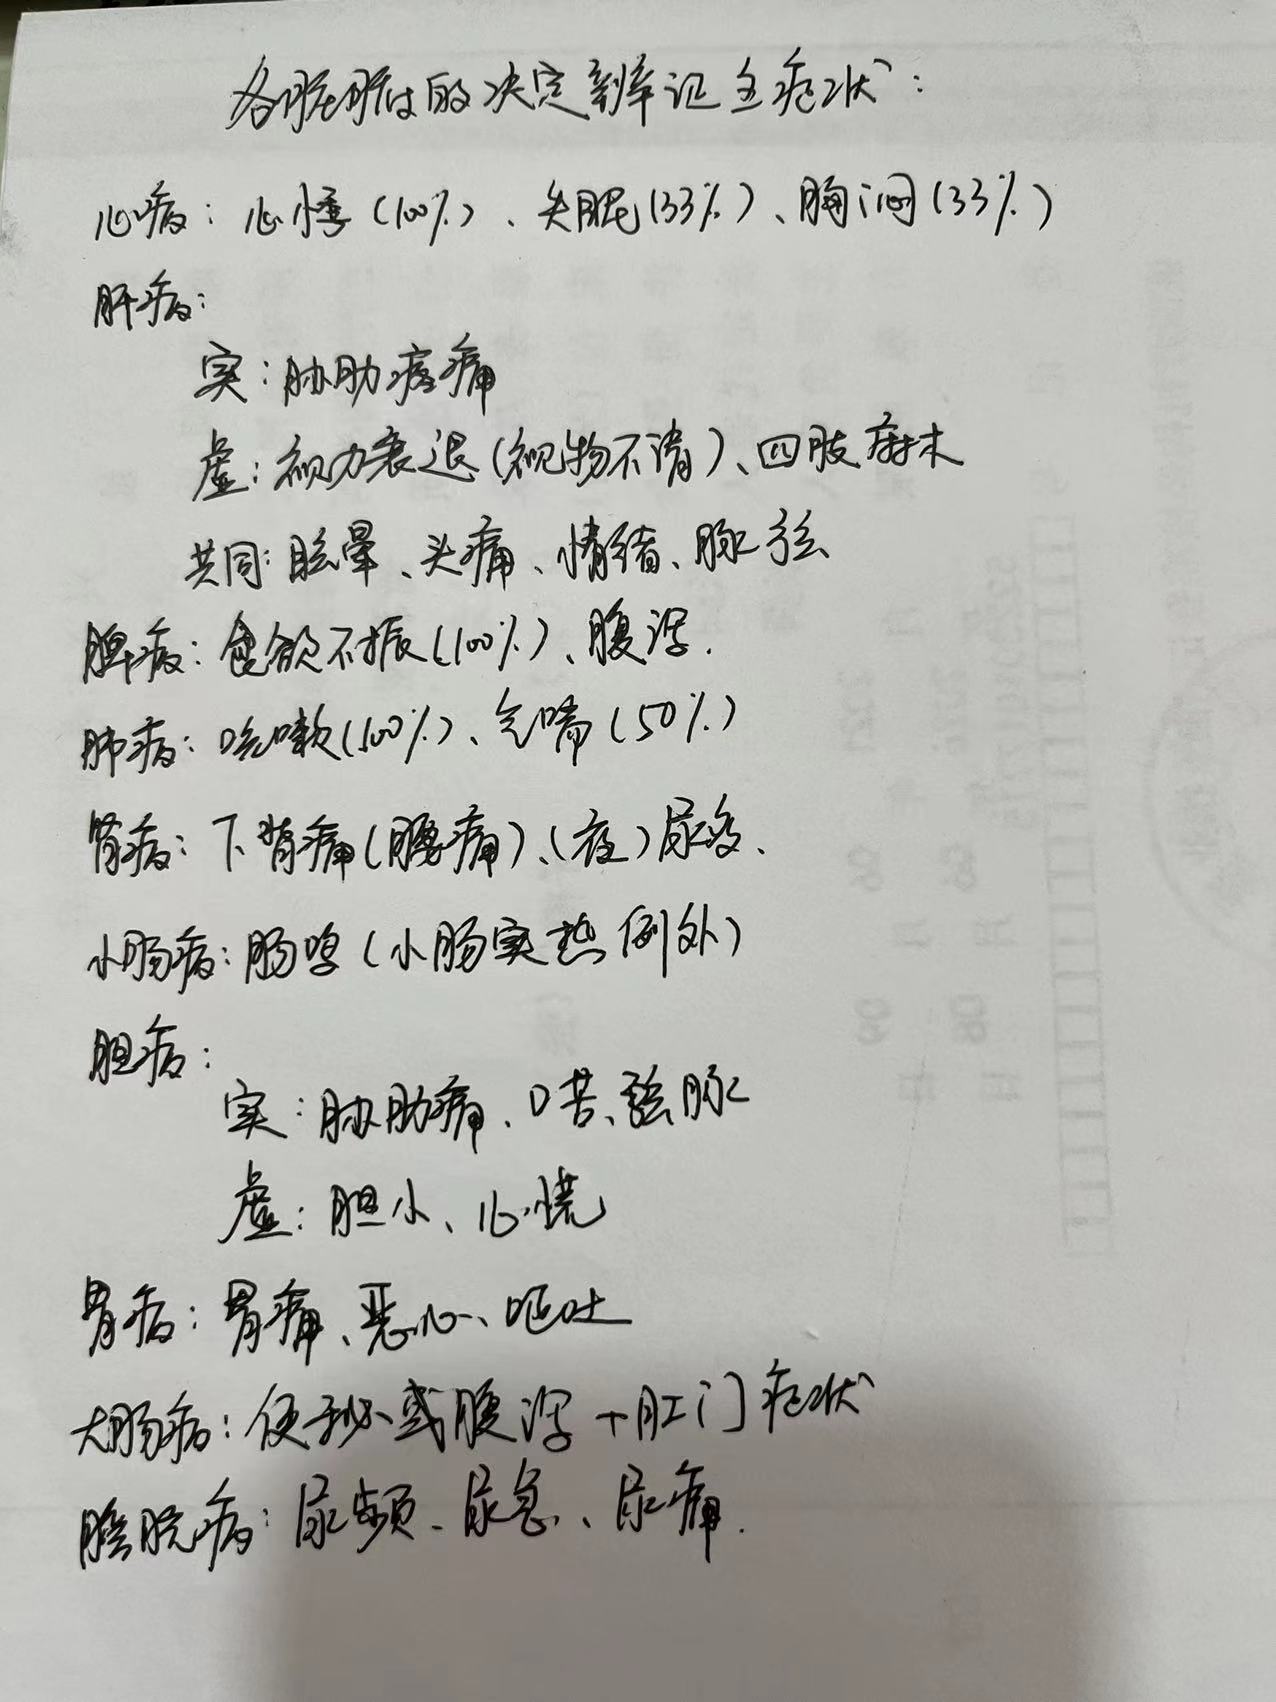 各脏腑的决定辨证主症状：
心病：心悸(100%)、失眠(33%)、胸闷(33%)
肝病：
实：胁肋疼痛
虚：视力衰退(视物不清)、四肢麻木
共同：眩晕、头痛、情绪、脉弦
脾病：食欲不振(100%)、腹泻.
肺病：咳嗽(100%)、气喘(50%)
肾病：下背痛(腰痛)、(夜)尿多.
小肠病：肠鸣(小肠实热例外)
胆病：
实：胁肋痛、口苦、弦脉
虚：胆小、心慌
胃病：胃痛、恶心、呕吐
大肠病：便秘或腹泻+肛门症状
膀胱病：尿频、尿急、尿痛.